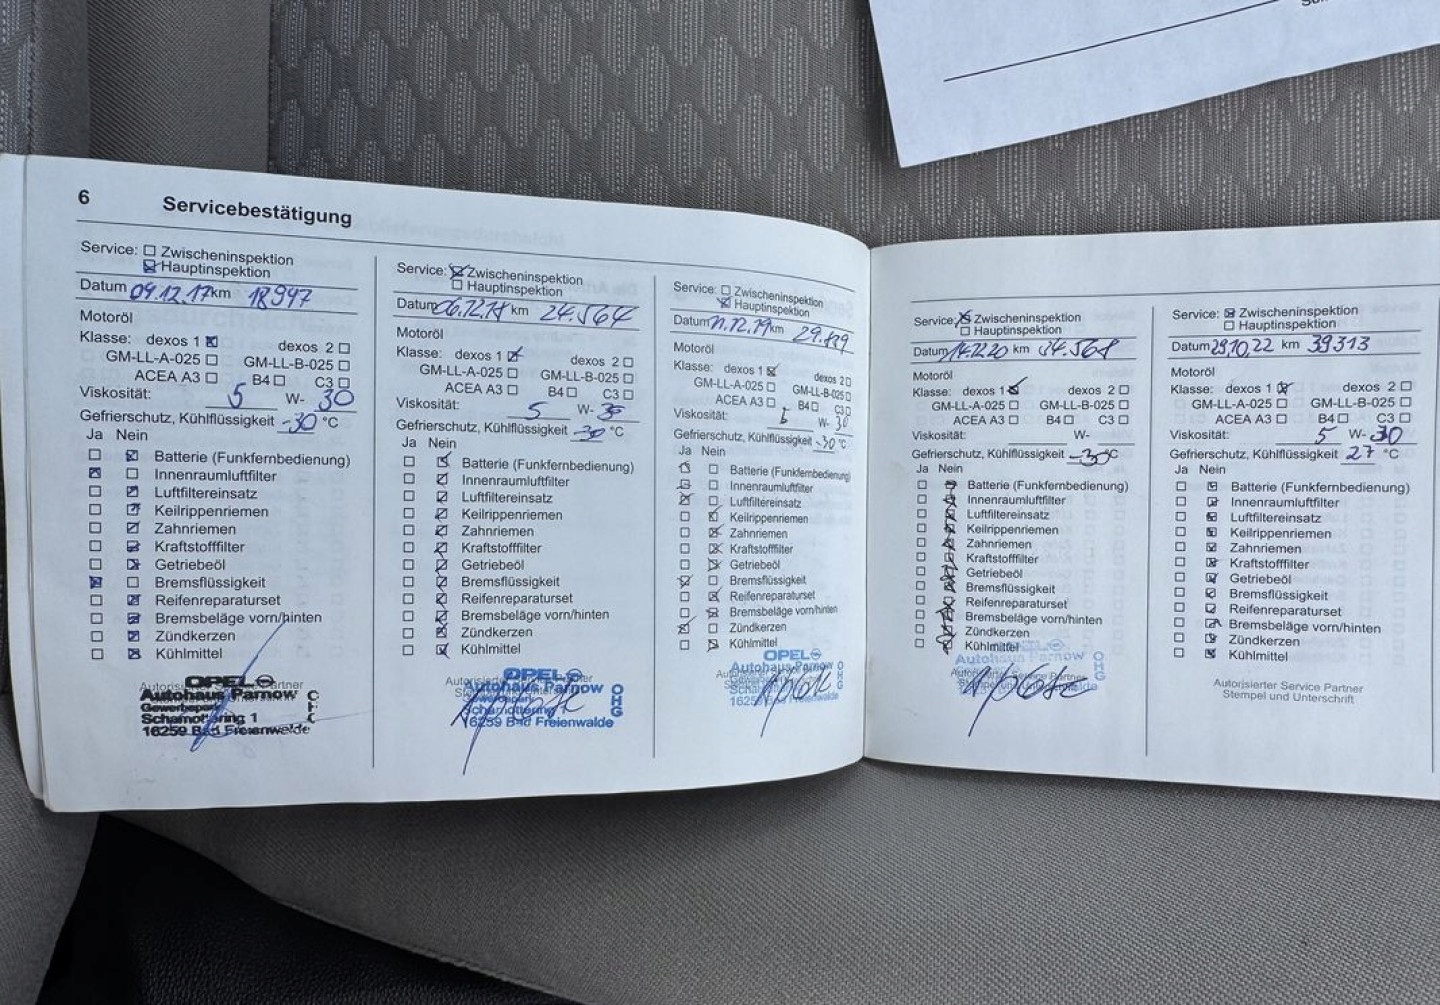 6 Servicebestätigung
Service: Zwischeninspektion
Hauptinspektion
Datum 04.12.17 km 18947
Motoröl
Klasse: dexos 1 dexos 2
GM-LL-A-025 GM-LL-B-025
ACEA A3 B4 C3
Viskosität: 5 W- 30
Gefrierschutz, Kühlflüssigkeit -30 °C
Ja Nein
Batterie (Funkfernbedienung)
Innenraumluftfilter
Luftfiltereinsatz
Keilrippenriemen
Zahnriemen
Kraftstofffilter
Getriebeöl
Bremsflüssigkeit
Reifenreparaturset
Bremsbeläge vorn/hinten
Zündkerzen
Kühlmittel
OPEL
Autohaus Parnow
Gewerbepark
Schamottering 1
16259 Bad Freienwalde
Service: Zwischeninspektion
Hauptinspektion
Datum 06.12.18 km 24.564
Motoröl
Klasse: dexos 1 dexos 2
GM-LL-A-025 GM-LL-B-025
ACEA A3 B4 C3
Viskosität: 5 W- 30
Gefrierschutz, Kühlflüssigkeit -30 °C
Ja Nein
Batterie (Funkfernbedienung)
Innenraumluftfilter
Luftfiltereinsatz
Keilrippenriemen
Zahnriemen
Kraftstofffilter
Getriebeöl
Bremsflüssigkeit
Reifenreparaturset
Bremsbeläge vorn/hinten
Zündkerzen
Kühlmittel
OPEL
Autohaus Parnow OHG
Schamottering
16259 Bad Freienwalde
Service: Zwischeninspektion
Hauptinspektion
Datum 11.12.19 km
Motoröl
Klasse: dexos 1 dexos 2
GM-LL-A-025 GM-LL-B-025
ACEA A3 B4 C3
Viskosität: 5 W- 30
Gefrierschutz, Kühlflüssigkeit -30 °C
Ja Nein
Batterie (Funkfernbedienung)
Innenraumluftfilter
Luftfiltereinsatz
Keilrippenriemen
Zahnriemen
Kraftstofffilter
Getriebeöl
Bremsflüssigkeit
Reifenreparaturset
Bremsbeläge vorn/hinten
Zündkerzen
Kühlmittel
OPEL
Autohaus Parnow OHG
16259 Bad Freienwalde
Service: Zwischeninspektion
Hauptinspektion
Datum 14.12.20 km 34.568
Motoröl
Klasse: dexos 1 dexos 2
GM-LL-A-025 GM-LL-B-025
ACEA A3 B4 C3
Viskosität: W-
Gefrierschutz, Kühlflüssigkeit -30 °C
Ja Nein
Batterie (Funkfernbedienung)
Innenraumluftfilter
Luftfiltereinsatz
Keilrippenriemen
Zahnriemen
Kraftstofffilter
Getriebeöl
Bremsflüssigkeit
Reifenreparaturset
Bremsbeläge vorn/hinten
Zündkerzen
Kühlmittel
OPEL
Autohaus Parnow OHG
Service: Zwischeninspektion
Hauptinspektion
Datum 29.10.22 km 39313
Motoröl
Klasse: dexos 1 dexos 2
GM-LL-A-025 GM-LL-B-025
ACEA A3 B4 C3
Viskosität: 5 W- 30
Gefrierschutz, Kühlflüssigkeit 27 °C
Ja Nein
Batterie (Funkfernbedienung)
Innenraumluftfilter
Luftfiltereinsatz
Keilrippenriemen
Zahnriemen
Kraftstofffilter
Getriebeöl
Bremsflüssigkeit
Reifenreparaturset
Bremsbeläge vorn/hinten
Zündkerzen
Kühlmittel
Autorisierter Service Partner
Stempel und Unterschrift